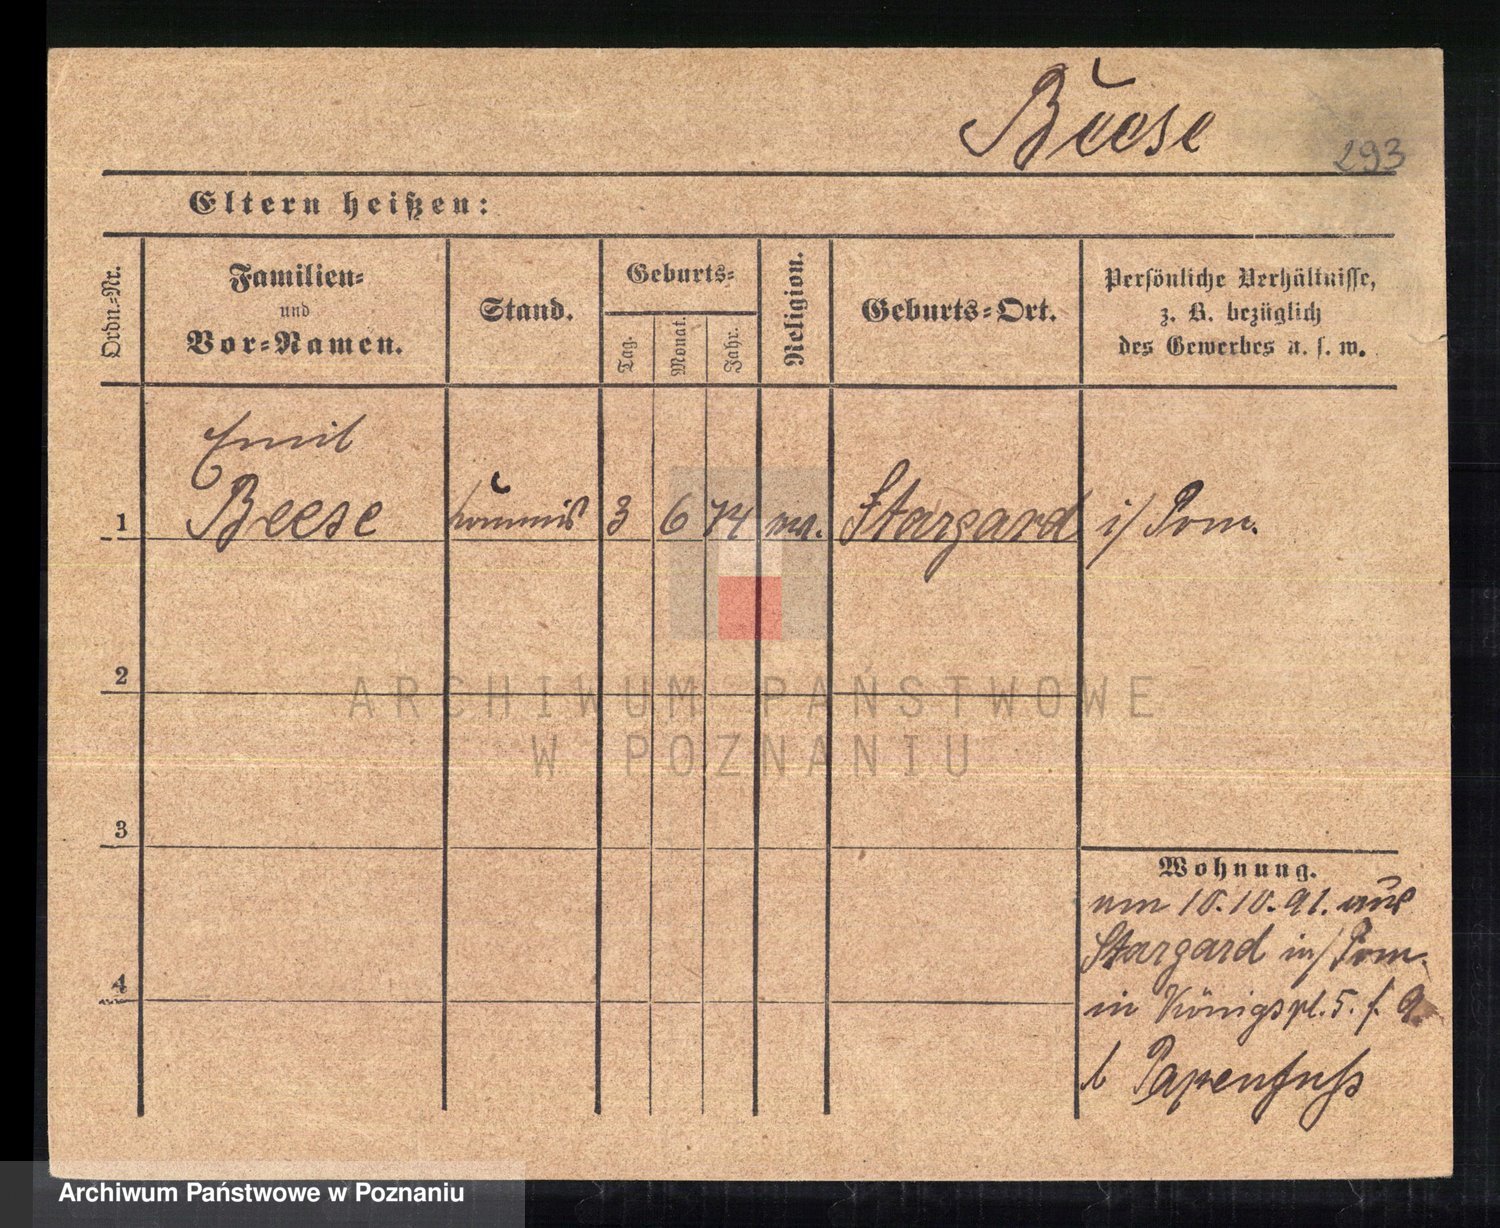 Beese
293
Eltern heißen:
Ordn.-Nr.
Familien-
und
Vor-Namen.
Stand.
Geburts-
Tag.
Monat.
Jahr.
Religion.
Geburts-Ort.
Persönliche Verhältnisse,
z. B. bezüglich
des Gewerbes u. s. w.
Emil
1 Beese Kommis 3 6 74 ev. Stargard i/ Pom.
2
3
4
Wohnung.
am 10.10.91. aus
Stargard in/ Pom.
in Königspl. 5. f.
b Papenfuß
ARCHIWUM PAŃSTWOWE
W POZNANIU
Archiwum Państwowe w Poznaniu